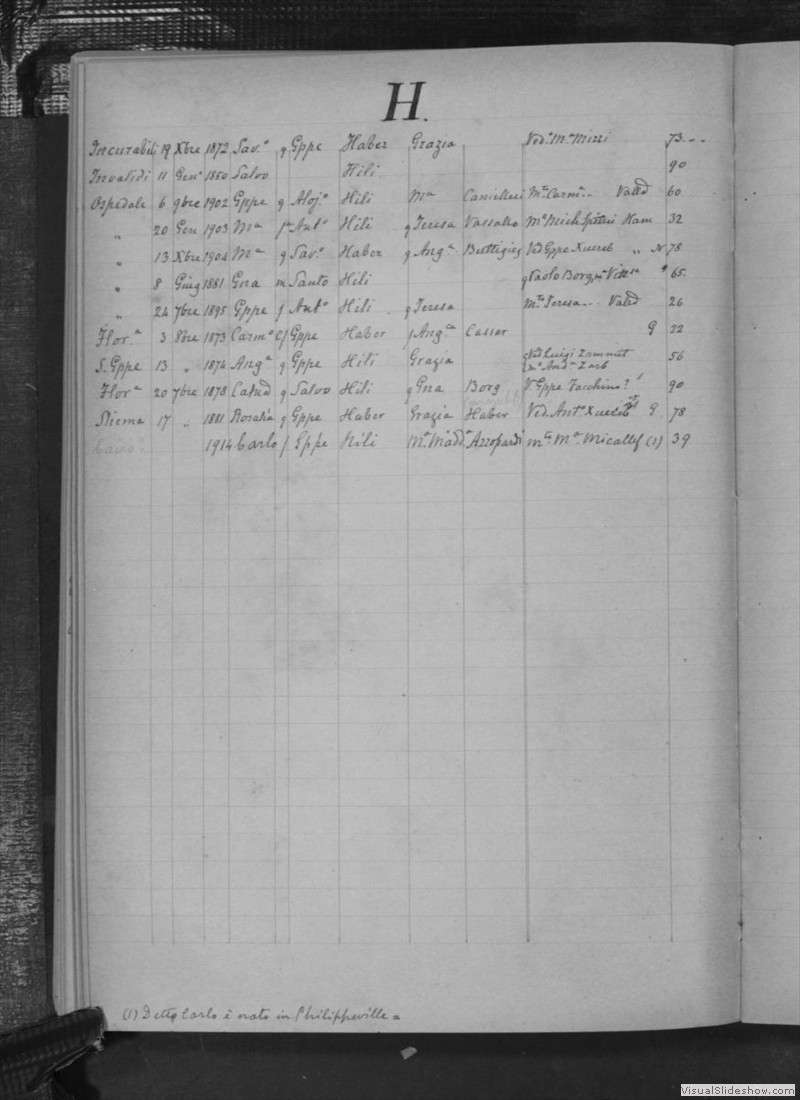 H.
Incurabili 19 Xbre 1872 Sav.o q Gppe Haber Grazia Ved.o M.a Mizzi 73
Invalidi 11 Gen.o 1850 Salvo Hili 90
Ospedale 6 9bre 1902 Gppe q Aloj.o Hili M.a Camilleri M.to Carm.a Valld 60
" 20 Gen 1903 M.a f.a Ant.o Hili q Teresa Vassallo M.o Mich. Spiteri Ham 32
" 13 Xbre 1904 M.a q Sav.o Haber q Ang.a Buttigieg Ved Gppe Xuereb " N 78
" 8 Giug 1881 Gna m Santo Hili q Paolo Borg Vitt.a 65.
" 24 7bre 1895 Gppe f Ant.o Hili q Teresa M.to Teresa Valld 26
Flor.a 3 8bre 1873 Carm.o C/ Gppe Haber f Ang.ca Cassar G 22
S. Gppe 13 " 1874 Ang.a q Gppe Hili Grazia Ved Luigi Zammit 56
And.a Zarb
Flor.a 20 7bre 1878 Catnd q Salvo Hili q Gna Borg V Gppe Facchino? 90
Sliema 17 " 1881 Rosalia q Gppe Haber Grazia Haber Ved. Ant.o Xuereb G 78
1914 Carlo f Gppe Hili M.a Madd.a Azzopardi M.to M.a Micallef (1) 39
(1) Detto Carlo è nato in Philippeville =
VisualSlideshow.com